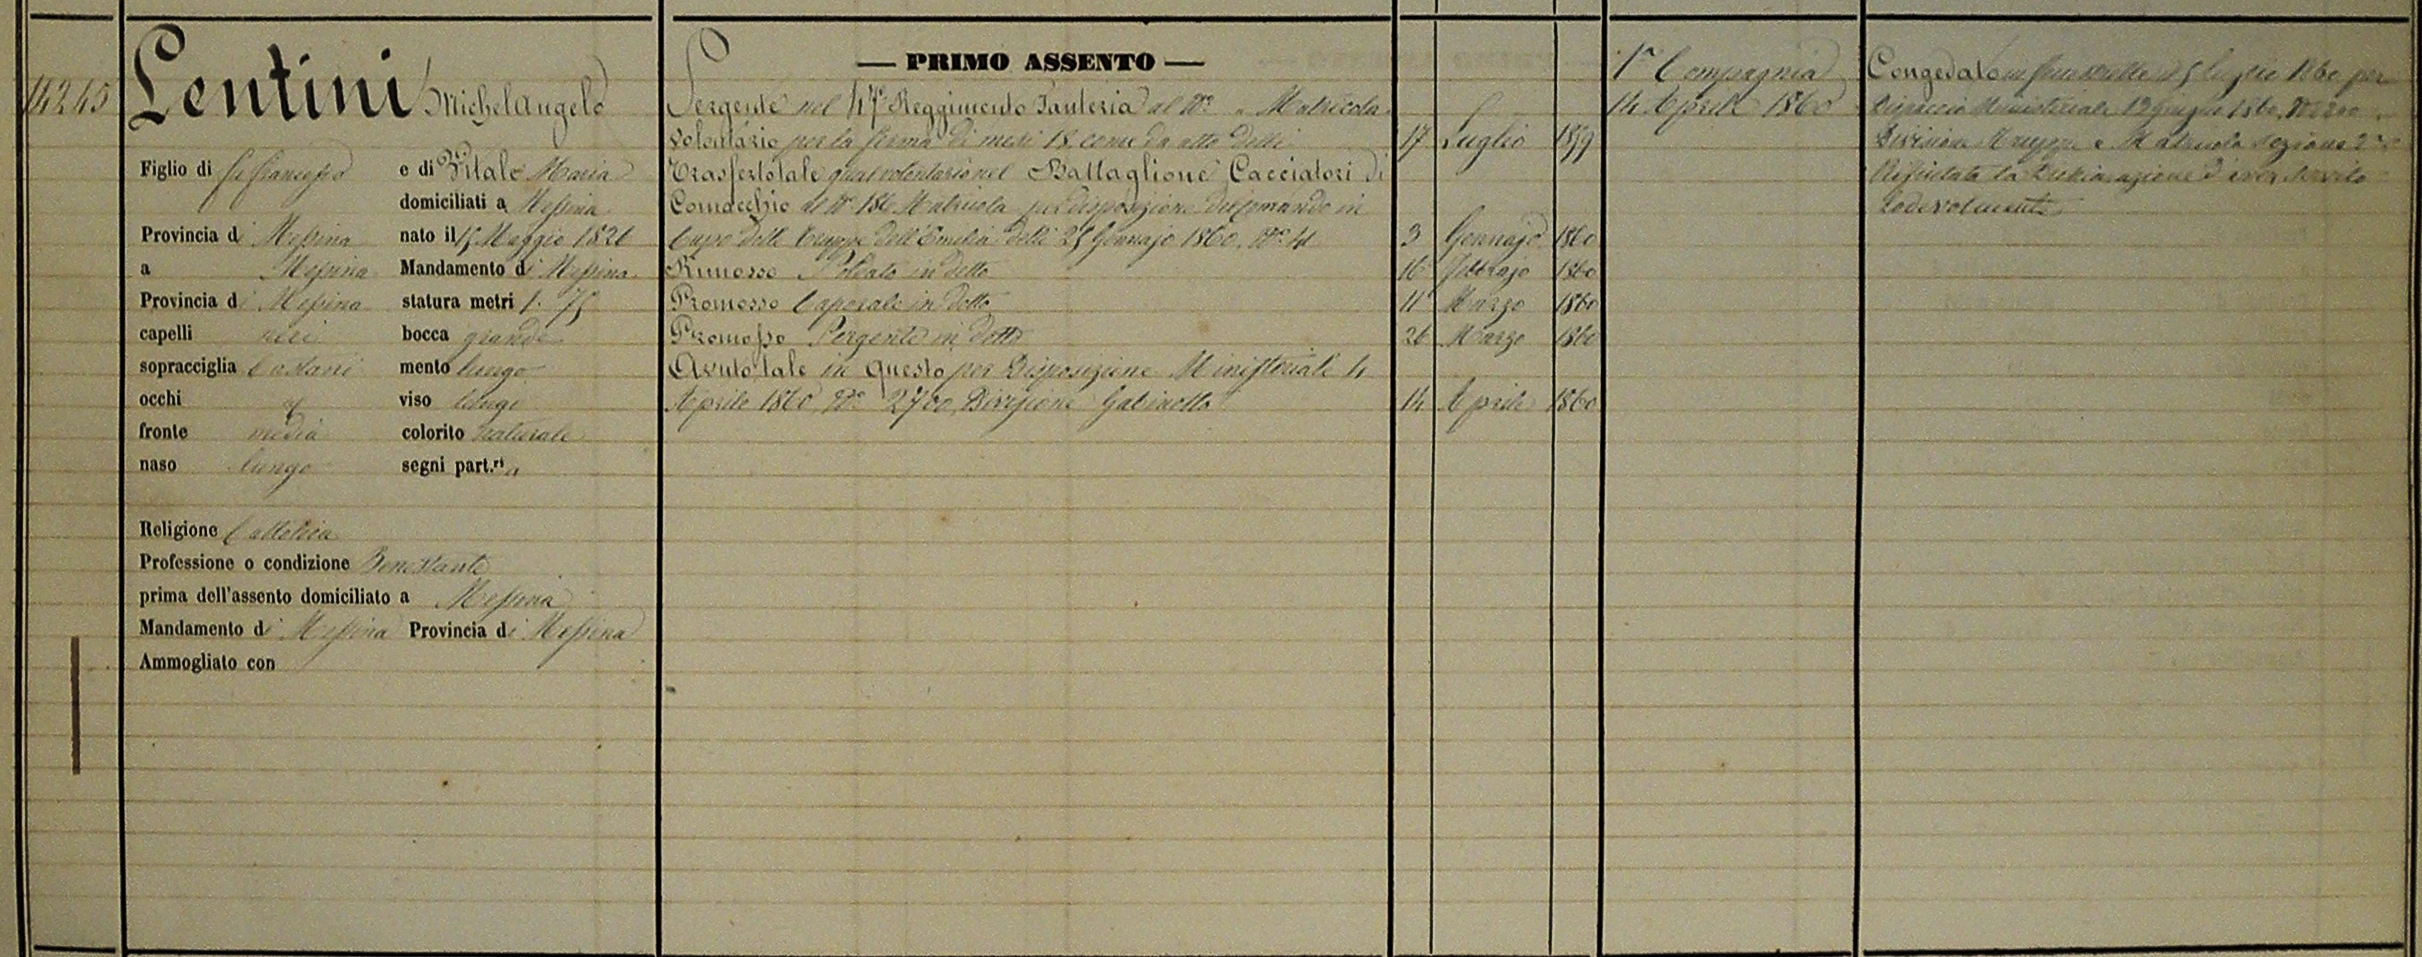 14245
Lentini Michelangelo
Figlio di fu Francesco e di Vitale Maria
domiciliati a Messina
Provincia di Messina nato il 15 Maggio 1826
a Messina Mandamento di Messina
Provincia di Messina statura metri 1.75
capelli neri bocca grande
sopracciglia Castani mento lungo
occhi viso lungo
fronte media colorito naturale
naso lungo segni part.ri
Religione Cattolica
Professione o condizione Benestante
prima dell'assento domiciliato a Messina
Mandamento di Messina Provincia di Messina
Ammogliato con
— PRIMO ASSENTO —
Sergente nel 47º Reggimento Fanteria al Nº " Matricola
volontario per la ferma di mesi 18 come da atto delli 17 Luglio 1859
Trasferto tale qual volontario nel Battaglione Cacciatori di
Comacchio al Nº 186 Matricola per disposizione del Comando in
Capo delle Truppe dell'Emilia delli 25 Gennajo 1860. Nº 41 3 Gennajo 1860
Rimosso Soldato in detto 16 Febbrajo 1860
Promosso Caporale in detto 11 Marzo 1860
Promosso Sergente in detto 26 Marzo 1860
Avuto tale in questo per Disposizione Ministeriale 4
Aprile 1860 Nº 2700 Divisione Gabinetto 14 Aprile 1860
1ª Compagnia
14 Aprile 1860
Congedato in 5 Luglio 1860 per
Dispaccio Ministeriale 19 Giugno 1860
Divisione Truppe e Matricola Sezione 2ª
Rifiutata la Dichiarazione d'aver servito
Lodevolmente